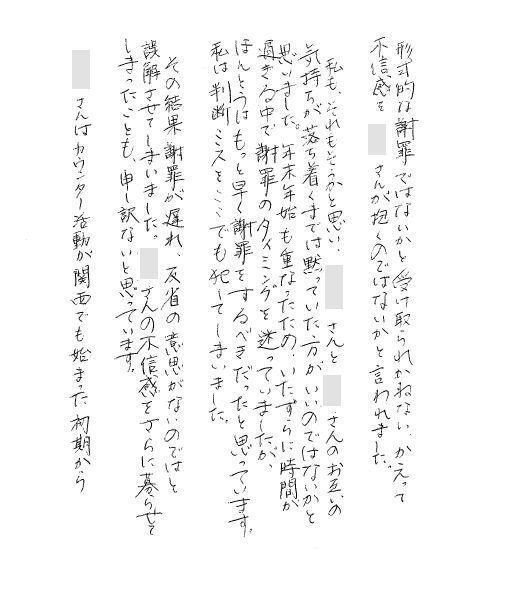 形式的な謝罪ではないかと受け取られかねない、かえって
不信感を
さんが抱くのではないかと言われました。
私も、それもそうかと思い、
さんと
さんのお互いの
気持ちが落ち着くまでは黙っていた方がいいのではないかと
思いました。年末年始も重なったため、いたずらに時間が
過ぎる中で謝罪のタイミングを迷っていましたが、
ほんとうはもっと早く謝罪をするべきだったと思っています。
私は判断ミスをここでも犯してしまいました。
その結果謝罪が遅れ、反省の意思がないのではと
誤解させてしまいました。
さんの不信感をさらに募らせて
しまったことも、申し訳ないと思っています。
さんはカウンター活動が関西でも始まった初期から